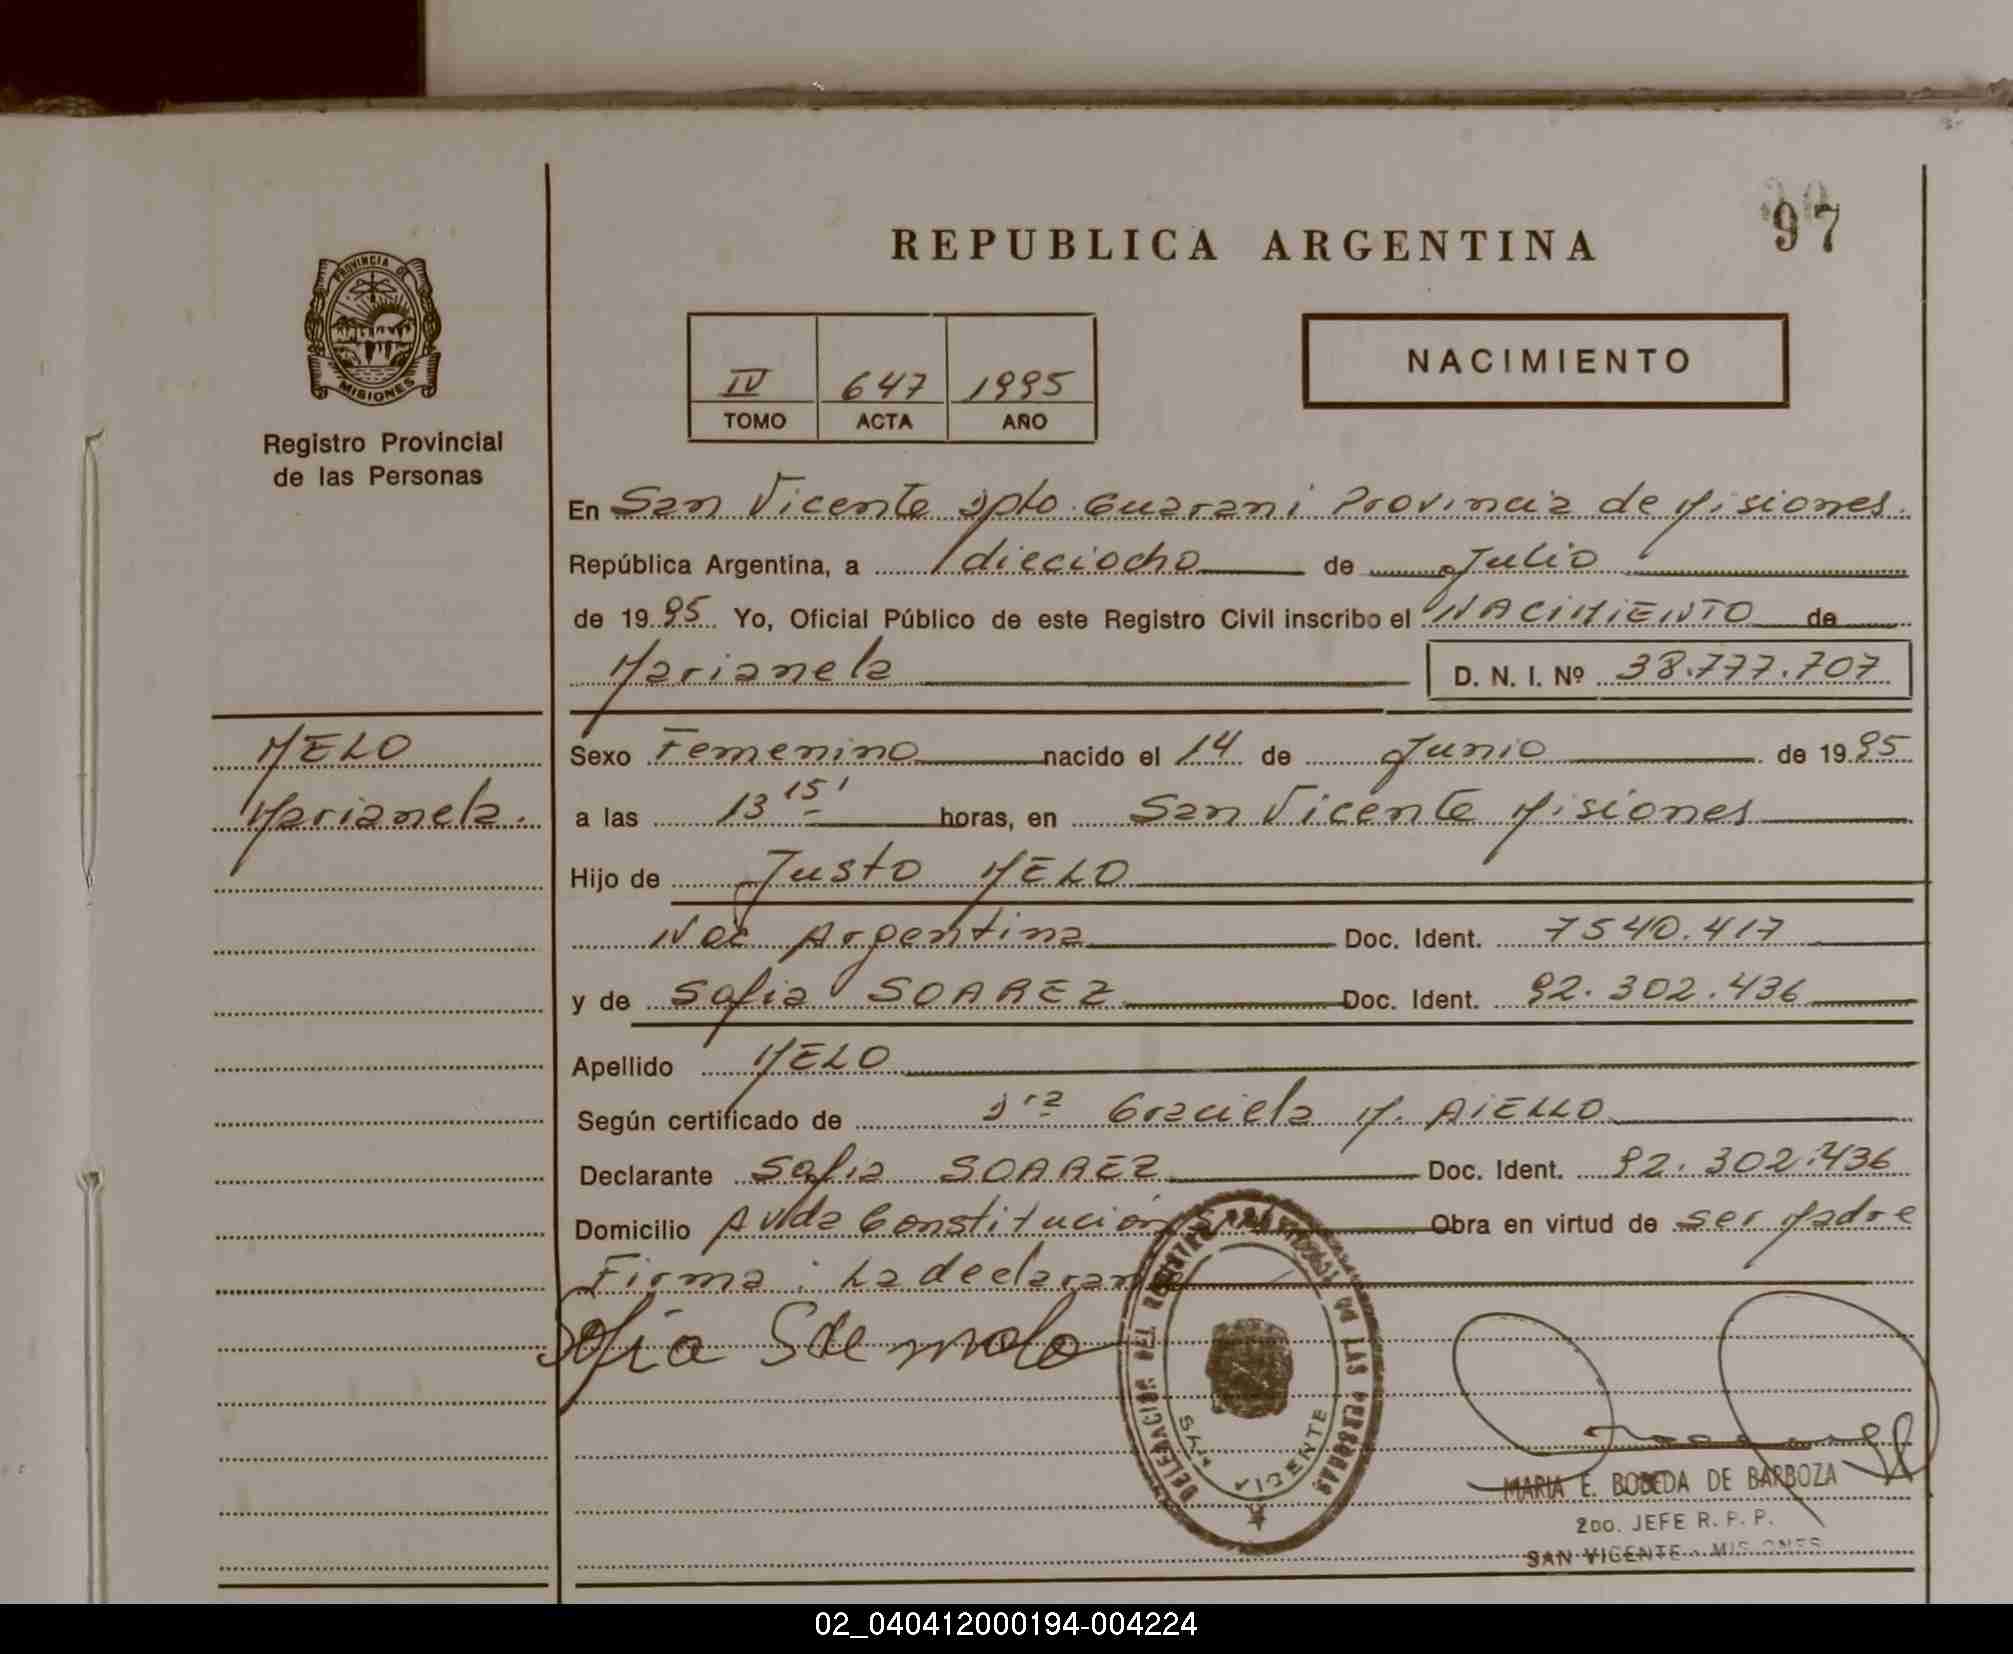 97
REPUBLICA ARGENTINA
PROVINCIA DE
MISIONES
Registro Provincial
de las Personas
IV 647 1995
TOMO ACTA AÑO
NACIMIENTO
En San Vicente Dpto. Guarani Provincia de Misiones.
República Argentina, a dieciocho de Julio
de 1995 Yo, Oficial Público de este Registro Civil inscribo el NACIMIENTO de
Marianela D. N. I. Nº 38.777.707
MELO
Marianela.
Sexo Femenino nacido el 14 de Junio de 1995
a las 13 15' horas, en San Vicente Misiones
Hijo de Justo MELO
Nac Argentina Doc. Ident. 7540.417
y de Sofia SOAREZ Doc. Ident. 92.302.436
Apellido MELO
Según certificado de Dra Graciela M. AIELLO
Declarante Sofia SOAREZ Doc. Ident. 92.302.436
Domicilio Avda Constitución Obra en virtud de ser Madre
Firma: La declarante
Sofia S de melo
DELEGACION DEL REGISTRO PROVINCIAL DE LAS PERSONAS
SAN VICENTE
MARIA E. BOBEDA DE BARBOZA
2DO. JEFE R. P. P.
SAN VICENTE - MISIONES
02_040412000194-004224